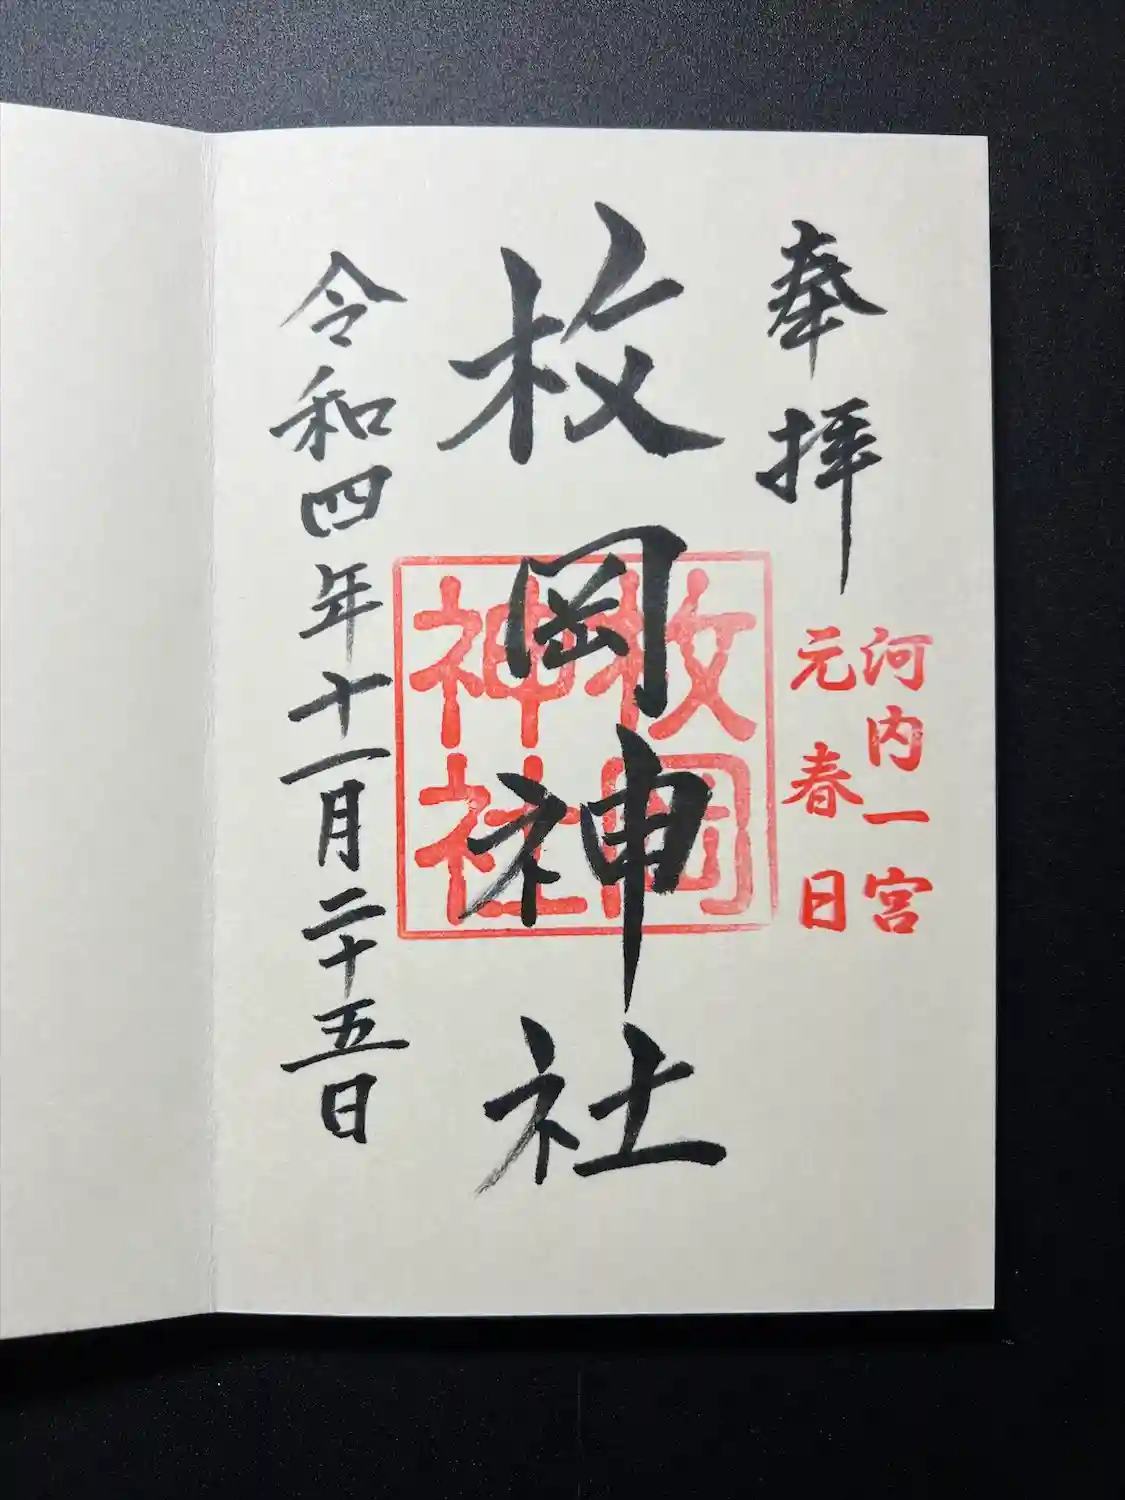 奉拝
河内一宮
元春日
枚岡神社
枚岡
神社
令和四年十一月二十五日